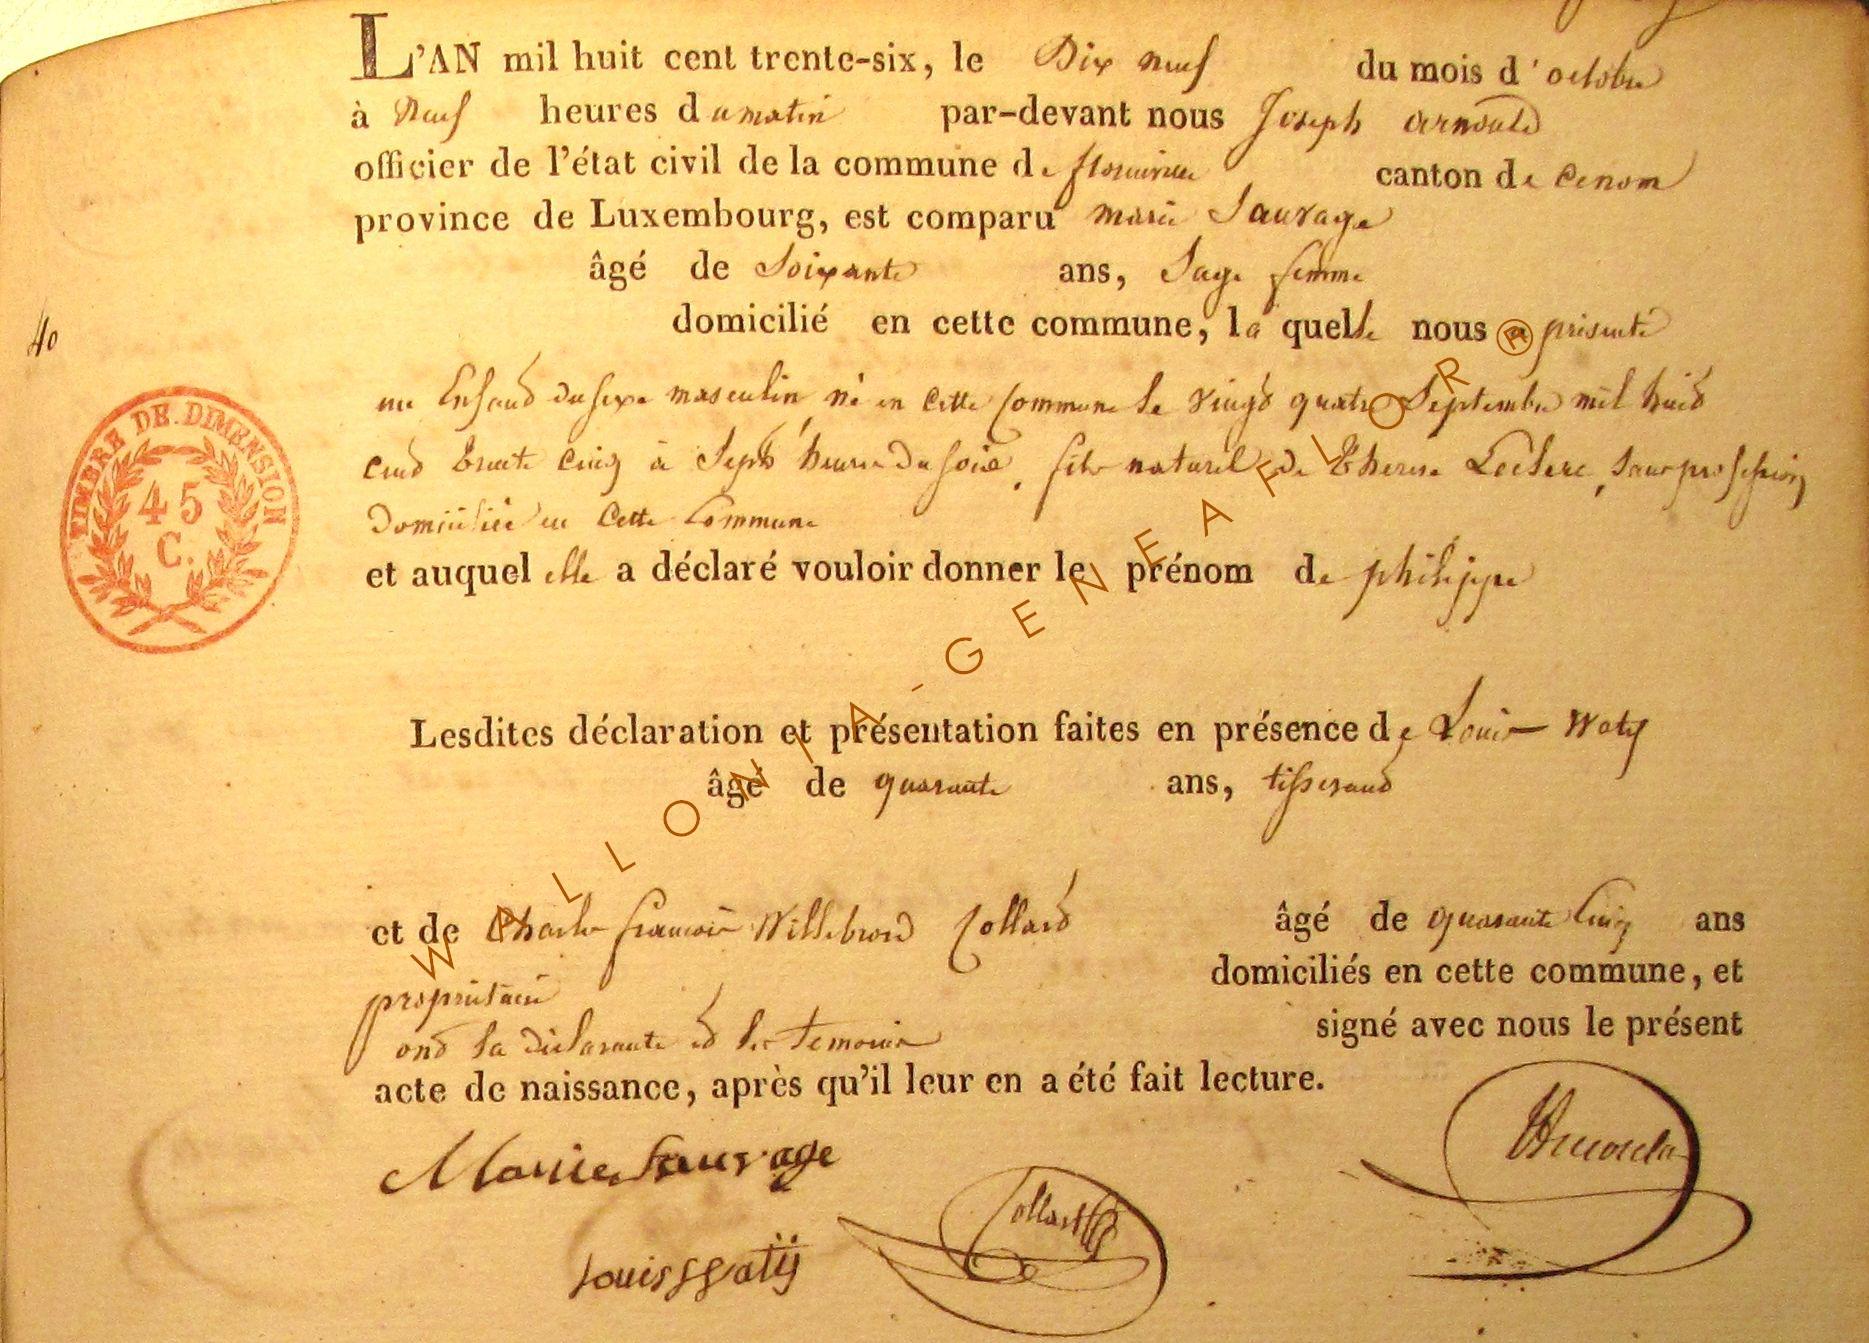 L'AN mil huit cent trente-six, le Dix neuf du mois d'octobre
à Neuf heures du matin par-devant nous Joseph arnould
officier de l'état civil de la commune de florenville canton de
province de Luxembourg, est comparu marie Sauvage
âgé de Soixante ans, Sage femme
domicilié en cette commune, la quelle nous a présenté
40
un Enfand du sexe masculin, né en Cette Commune le vingt quatre Septembre mil huid
cend trente cinq à Sept heures du soir, fils naturel de Therese Leclerc, Sans profession
TIMBRE DE DIMENSION
45
C.
Domiciliée en Cette Commune
et auquel elle a déclaré vouloir donner le prénom de philippe
Lesdites déclaration et présentation faites en présence de Louis Waty
âgé de quarante ans, tisserand
et de Charles francois Willebrord Collard âgé de quarante Cinq ans
domiciliés en cette commune, et
propriétaire
signé avec nous le présent
ond la déclarante et les temoins
acte de naissance, après qu'il leur en a été fait lecture.
Marie Sauvage
Collard
Louis Watÿ
WALLONIA-GENEAFLOR®